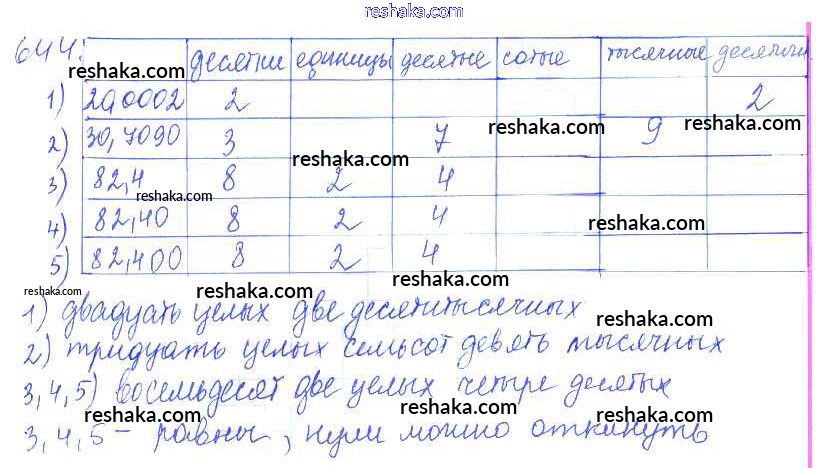 reshaka.com
644. десятки единицы десятые сотые тысячные десятичн
reshaka.com reshaka.com reshaka.com
1) 20,0002 2 2
2) 30,7090 3 7 9
reshaka.com reshaka.com
3) 82,4 8 2 4
reshaka.com
4) 82,40 8 2 4
reshaka.com
5) 82,400 8 2 4
reshaka.com reshaka.com
1) двадцать целых две десятитысячных
reshaka.com
2) тридцать целых семьсот девять тысячных
3,4,5) восемьдесят две целых четыре десятых
reshaka.com reshaka.com
3,4,5 - равны, нули можно откинуть
reshaka.com reshaka.com reshaka.com